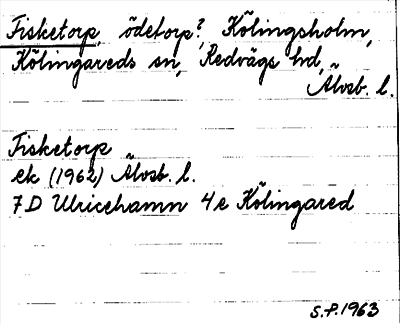 Fisketorp, ödetorp?, Kölingsholm,
Kölingareds sn, Redvägs hd,
Älvsb. l.
Fisketorp
ek (1962) Älvsb. l.
7D Ulricehamn 4e Kölingared
S.P. 1963